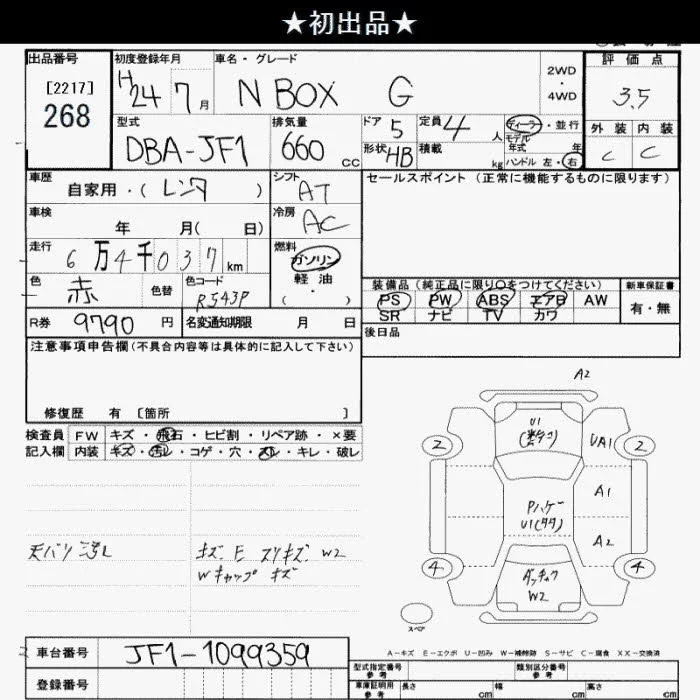 ★初出品★
出品番号 初度登録年月 車名・グレード 評価点
[2217]
268
H24 7月 N BOX G
2WD
・
4WD
3.5
型式 排気量 ドア 5 定員 4 人 ディーラー・並行
DBA-JF1 660 cc
モデル年式 年
形状 HB 積載 kg ハンドル 左・右
外装 内装
C C
車歴 シフト セールスポイント (正常に機能するものに限ります)
自家用・( レンタ ) AT
車検 冷房
年 月( 日) AC
走行 燃料
6万4千037km ガソリン
軽油
( ・ )
色 色替 色コード
赤 R543P
装備品 (純正品に限り○をつけてください) 新車保証書
PS PW ABS エアB AW 有・無
SR ナビ TV カワ
R券 9790 円 名変通知期限 月 日
後日品
注意事項申告欄(不具合内容等は具体的に記入して下さい)
修復歴 有 〔箇所 〕
検査員 FW キズ・飛石・ヒビ割・リペア跡・×要
記入欄 内装 キズ・汚レ・コゲ・穴・スレ・キレ・破レ
天バリ 汚レ
キズ E スリキズ W2
Wキャップ キズ
A2
U1
2 UA1 2
A1
Pハゲ
U1(タタ)
A2
4 4
W2
スペア
A-キズ E-エクボ U-凹み W-補修跡 S-サビ C-腐食 XX-交換済
車台番号 JF1-1099359
登録番号
型式指定番号 参考 類別区分番号 参考
車庫証明用 参考 長さ cm 幅 cm 高さ cm